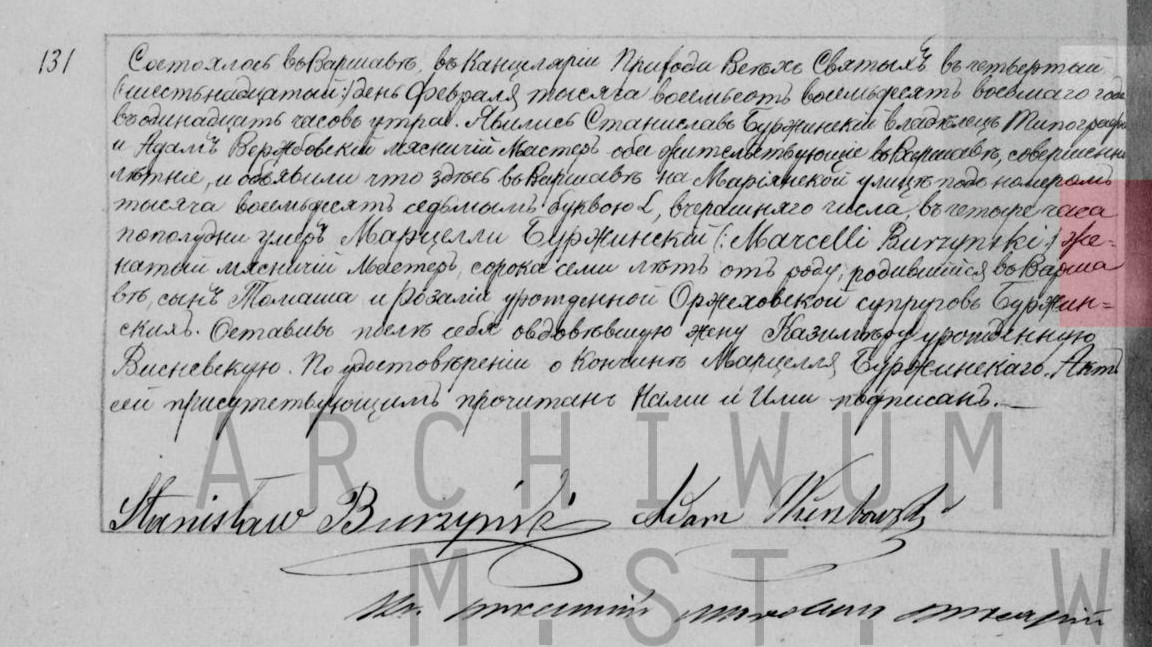 131
Состоялось въ Варшавѣ, въ Канцеляріи Прихода Всѣхъ Святыхъ въ четвертый
(:шестьнадцатый:) день Февраля тысяча восемьсотъ восемьдесятъ восьмаго года
въ одинадцать часовъ утра. Явились Станиславъ Буржинскій владѣлецъ Типографіи
и Адамъ Вержбовскій мясничій Мастеръ оба жительствующіе въ Варшавѣ, совершенно
лѣтніе, и объявили что здѣсь въ Варшавѣ на Маріянской улицѣ подъ номеромъ
тысяча восемьдесятъ седьмымъ буквою L, вчерашняго числа, въ четыре часа
пополудни умеръ Марцелли Буржинскій (:Marcelli Burzyński:) же-
натый мясничій Мастеръ, сорока семи лѣтъ отъ роду, родившійся въ Варша
вѣ, сынъ Томаша и Розаліи урожденной Оржеховской супруговъ Буржин-
скихъ. Оставивъ послѣ себя овдовѣвшую жену Казимѣру урожденную
Висневскую. По удостовѣреніи о Кончинѣ Марцелля Буржинскаго. Актъ
сей присутствующимъ прочитанъ Нами и Ими подписанъ.
Stanisław Burzyński Adam Wierzbowski
ARCHIWUM
M. ST. W